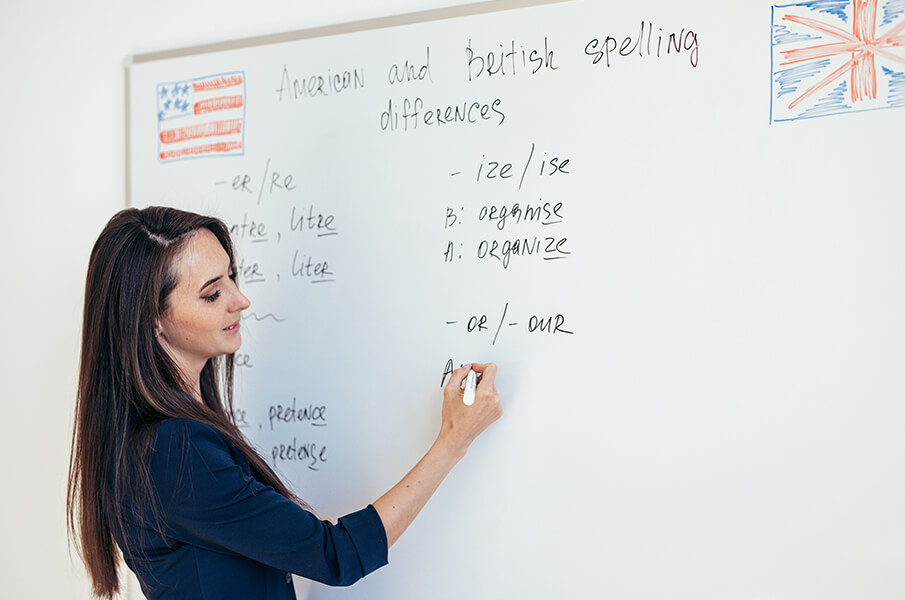 American and British spelling
differences
- er/re
litre
liter
pretence
pretense
- ize/ise
B: organise
A: organize
- or/- our
A: